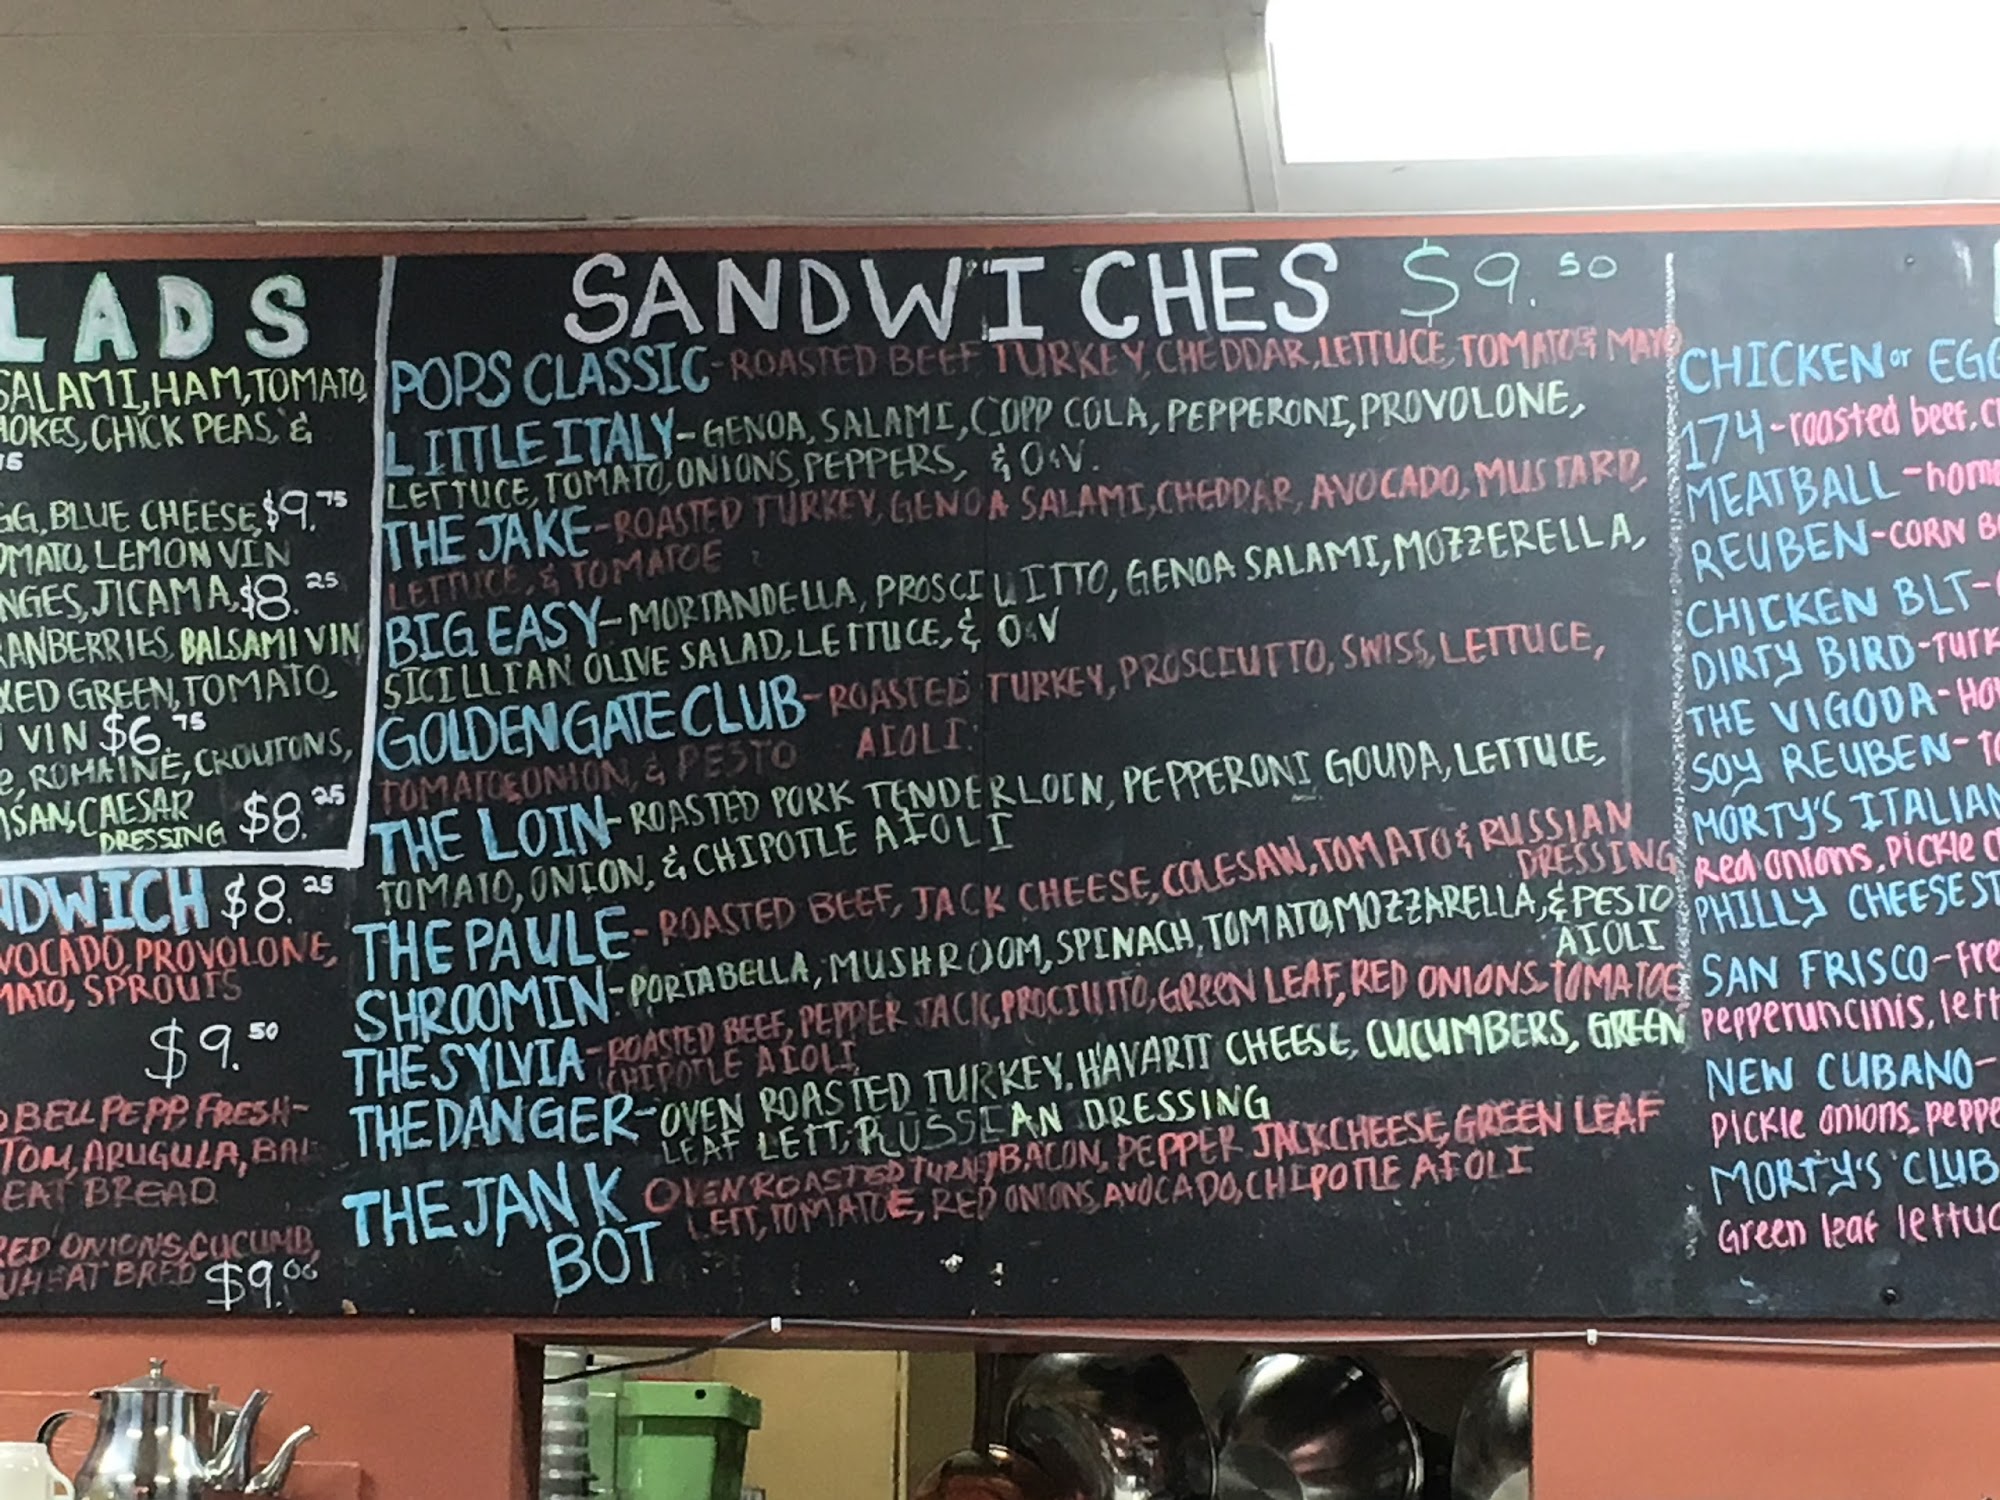 LADS
SALAMI, HAM, TOMATO,
HOKES, CHICK PEAS, &
GG, BLUE CHEESE, $9.75
OMATO, LEMON VIN
NGES, JICAMA, $8.25
RANBERRIES, BALSAMI VIN
XED GREEN, TOMATO,
VIN $6.75
E, ROMAINE, CROUTONS,
SAN, CAESAR
DRESSING $8.25
NDWICH $8.25
VOCADO, PROVOLONE,
MATO, SPROUTS
$9.50
BELL PEPP, FRESH-
TOM, ARUGULA, BAL
EAT BREAD
RED ONIONS, CUCUMB,
WHEAT BRED $9.00
SANDWICHES $9.50
POPS CLASSIC-ROASTED BEEF, TURKEY, CHEDDAR, LETTUCE, TOMATO & MAYO
LITTLE ITALY-GENOA, SALAMI, COPP COLA, PEPPERONI, PROVOLONE,
LETTUCE, TOMATO, ONIONS, PEPPERS, & O&V.
THE JAKE-ROASTED TURKEY, GENOA SALAMI, CHEDDAR, AVOCADO, MUSTARD,
LETTUCE, & TOMATOE
BIG EASY-MORTANDELLA, PROSCIUITTO, GENOA SALAMI, MOZZERELLA,
SICILLIAN OLIVE SALAD, LETTUCE, & O&V
GOLDEN GATE CLUB-ROASTED TURKEY, PROSCIUTTO, SWISS, LETTUCE,
TOMATO & ONION, & PESTO AIOLI.
THE LOIN-ROASTED PORK TENDERLOIN, PEPPERONI GOUDA, LETTUCE,
TOMATO, ONION, & CHIPOTLE AIOLI
THE PAULE-ROASTED BEEF, JACK CHEESE, COLESAW, TOMATO & RUSSIAN
DRESSING
SHROOMIN-PORTABELLA, MUSHROOM, SPINACH, TOMATO, MOZZARELLA, & PESTO
AIOLI
THE SYLVIA-ROASTED BEEF, PEPPER JACK, PROCIUTTO, GREEN LEAF, RED ONIONS, TOMATOE
CHIPOTLE AIOLI,
THE DANGER-OVEN ROASTED TURKEY, HAVARTI CHEESE, CUCUMBERS, GREEN
LEAF LETT, RUSSIAN DRESSING
THE JANK OVEN ROASTED TURKEY BACON, PEPPER JACK CHEESE, GREEN LEAF
LETT, TOMATOE, RED ONIONS, AVOCADO, CHIPOTLE AIOLI
BOT
CHICKEN or EGG
174-roasted beef, c
MEATBALL-hom
REUBEN-CORN B
CHICKEN BLT-
DIRTY BIRD-TURK
THE VIGODA-HO
SOY REUBEN-TO
MORTY'S ITALIAN
Red onions, Pickle c
PHILLY CHEESEST
SAN FRISCO-Fre
Pepperuncinis, lett
NEW CUBANO-
Pickle onions, peppe
MORTY'S CLUB
Green leaf lettuc